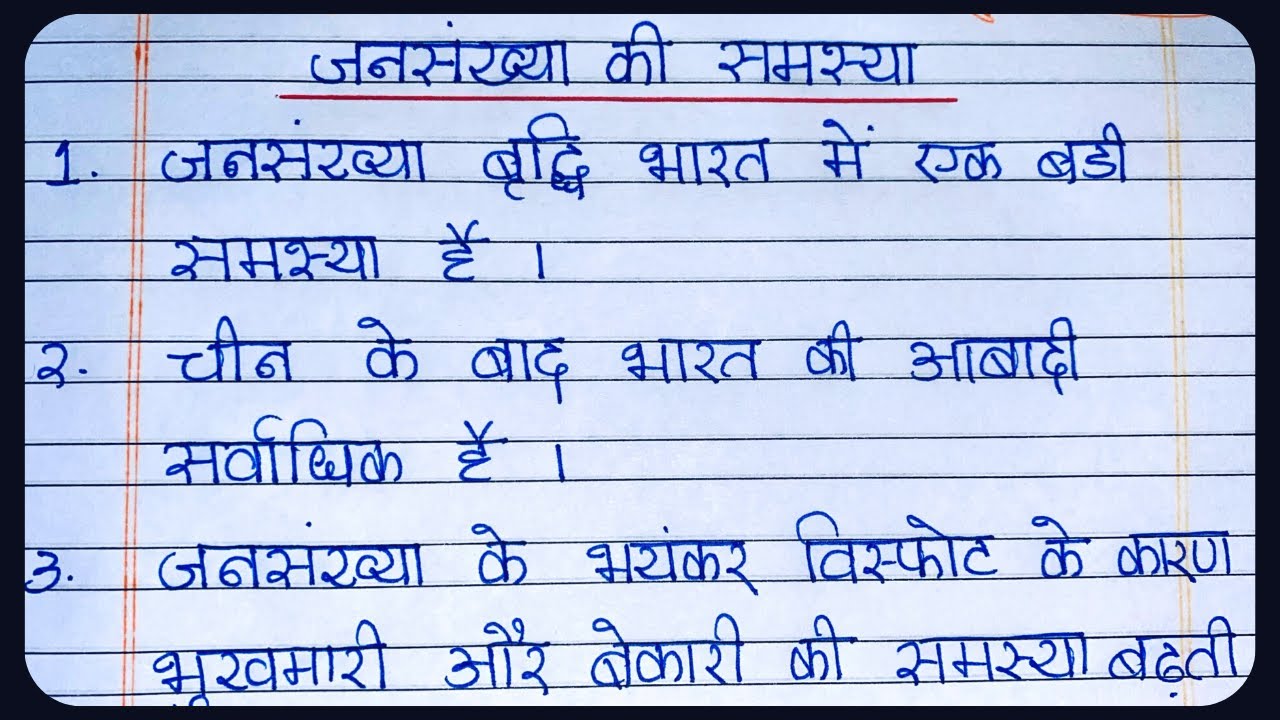 जनसंख्या की समस्या
1. जनसंख्या बृद्धि भारत में एक बडी
समस्या है ।
२. चीन के बाद भारत की आबादी
सर्वाधिक है ।
3. जनसंख्या के भयंकर विस्फोट के कारण
भूखमारी और बेकारी की समस्या बढ़ती